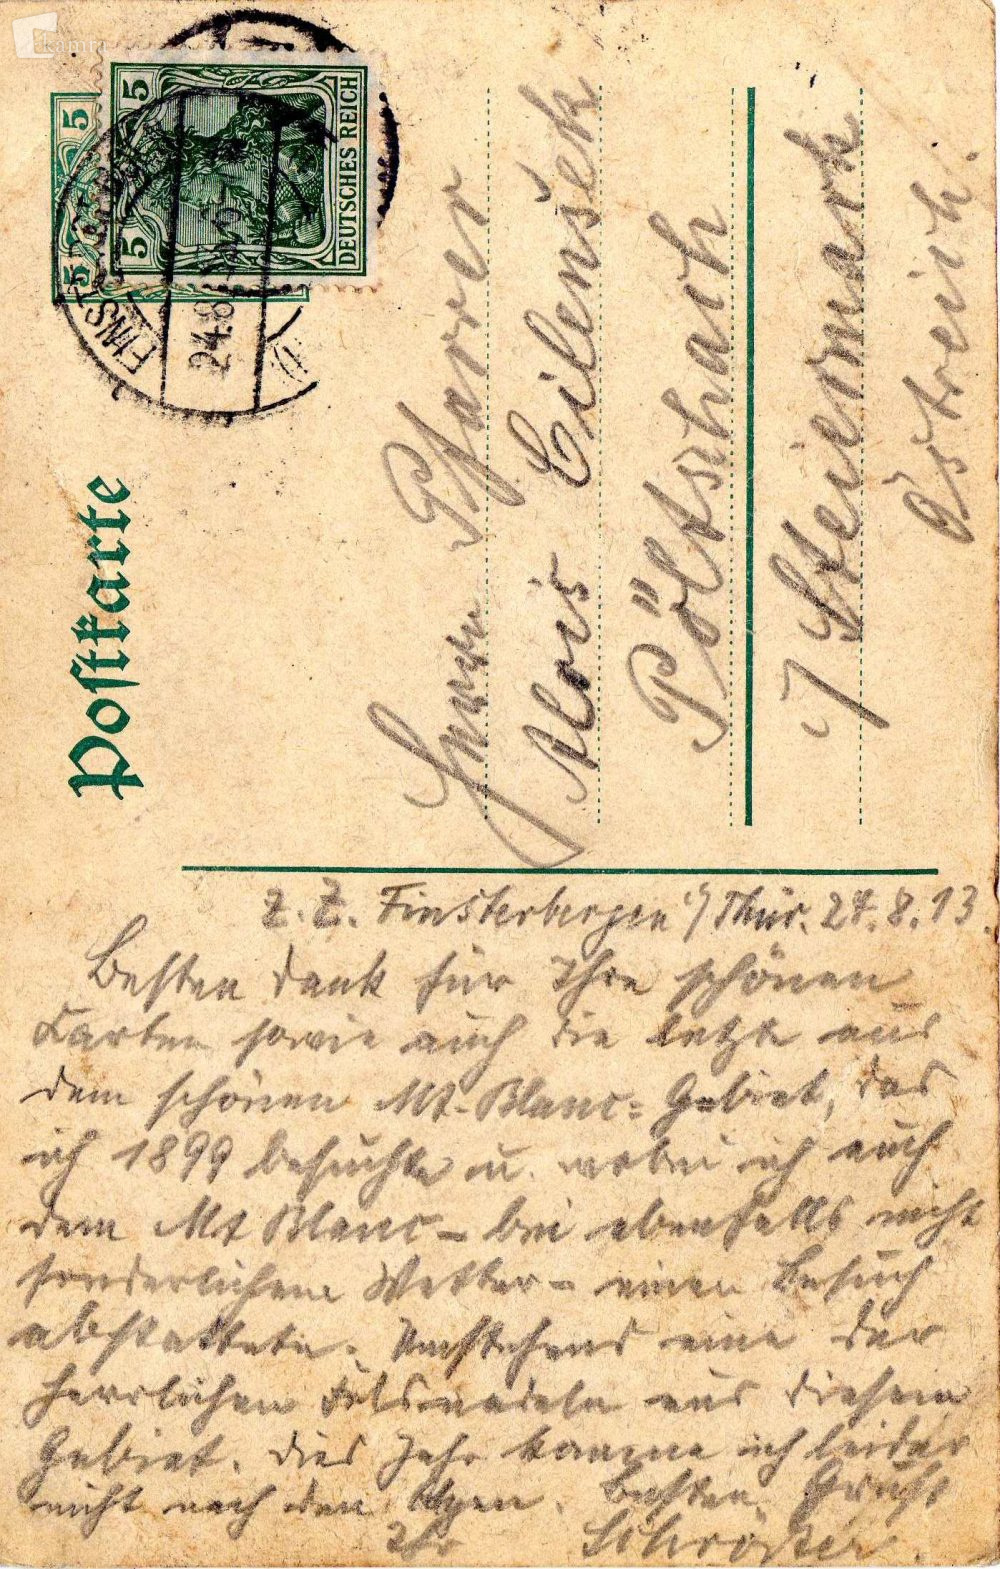 kamra
5
5
5
5
DEUTSCHES REICH
FINSTERBERGEN
24.8.
Postkarte
Herrn Pfarrer
Alois Cilenšek
Pöltschach
i/ Steiermark
Östreich.
z. Z. Finsterbergen i/ Thür. 24.8.13.
Besten Dank für Ihre schönen
Karten sowie auch die letzte aus
dem schönen Mt-Blanc-Gebiet, das
ich 1899 besuchte u. wobei ich auch
dem Mt Blanc - bei ebenfalls nicht
sonderlichem Wetter - einen Besuch
abstattete. Umstehend eine der
herrlichen Felsnadeln aus diesem
Gebiet. Dies Jahr komme ich leider
nicht nach den Alpen. Besten Gruß
Ihr Schröder.